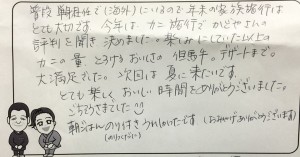 普段、単身赴任で(海外)にいるので年末の家族旅行は
とても大切です。今年は カニ旅行で かどやさんの
評判を聞き 決めました。楽しみにしていた以上の
カニの量 とろけるおいしさの 但馬牛。デザートまで。
大満足でした。次回は 夏に来たいです。
とても楽しく、おいしい時間をありがとうございました。
ごちそうさまでした
朝ごはんのり付きうれしかったです (おみやげありがとうございます)
(のりつくだに)